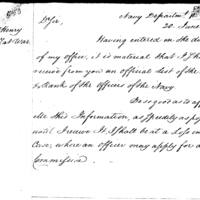 Navy Department
20. June
D. Sir,
Henry
Having entered on the d
of my office, it is material that I sh
receive from you an official list of the
& Rank of the Officers of the Navy.
Be so good as to
this Information, as speedily as
until I receive it. I shall be at a loss in
Case, where an officer may apply for a
Commission